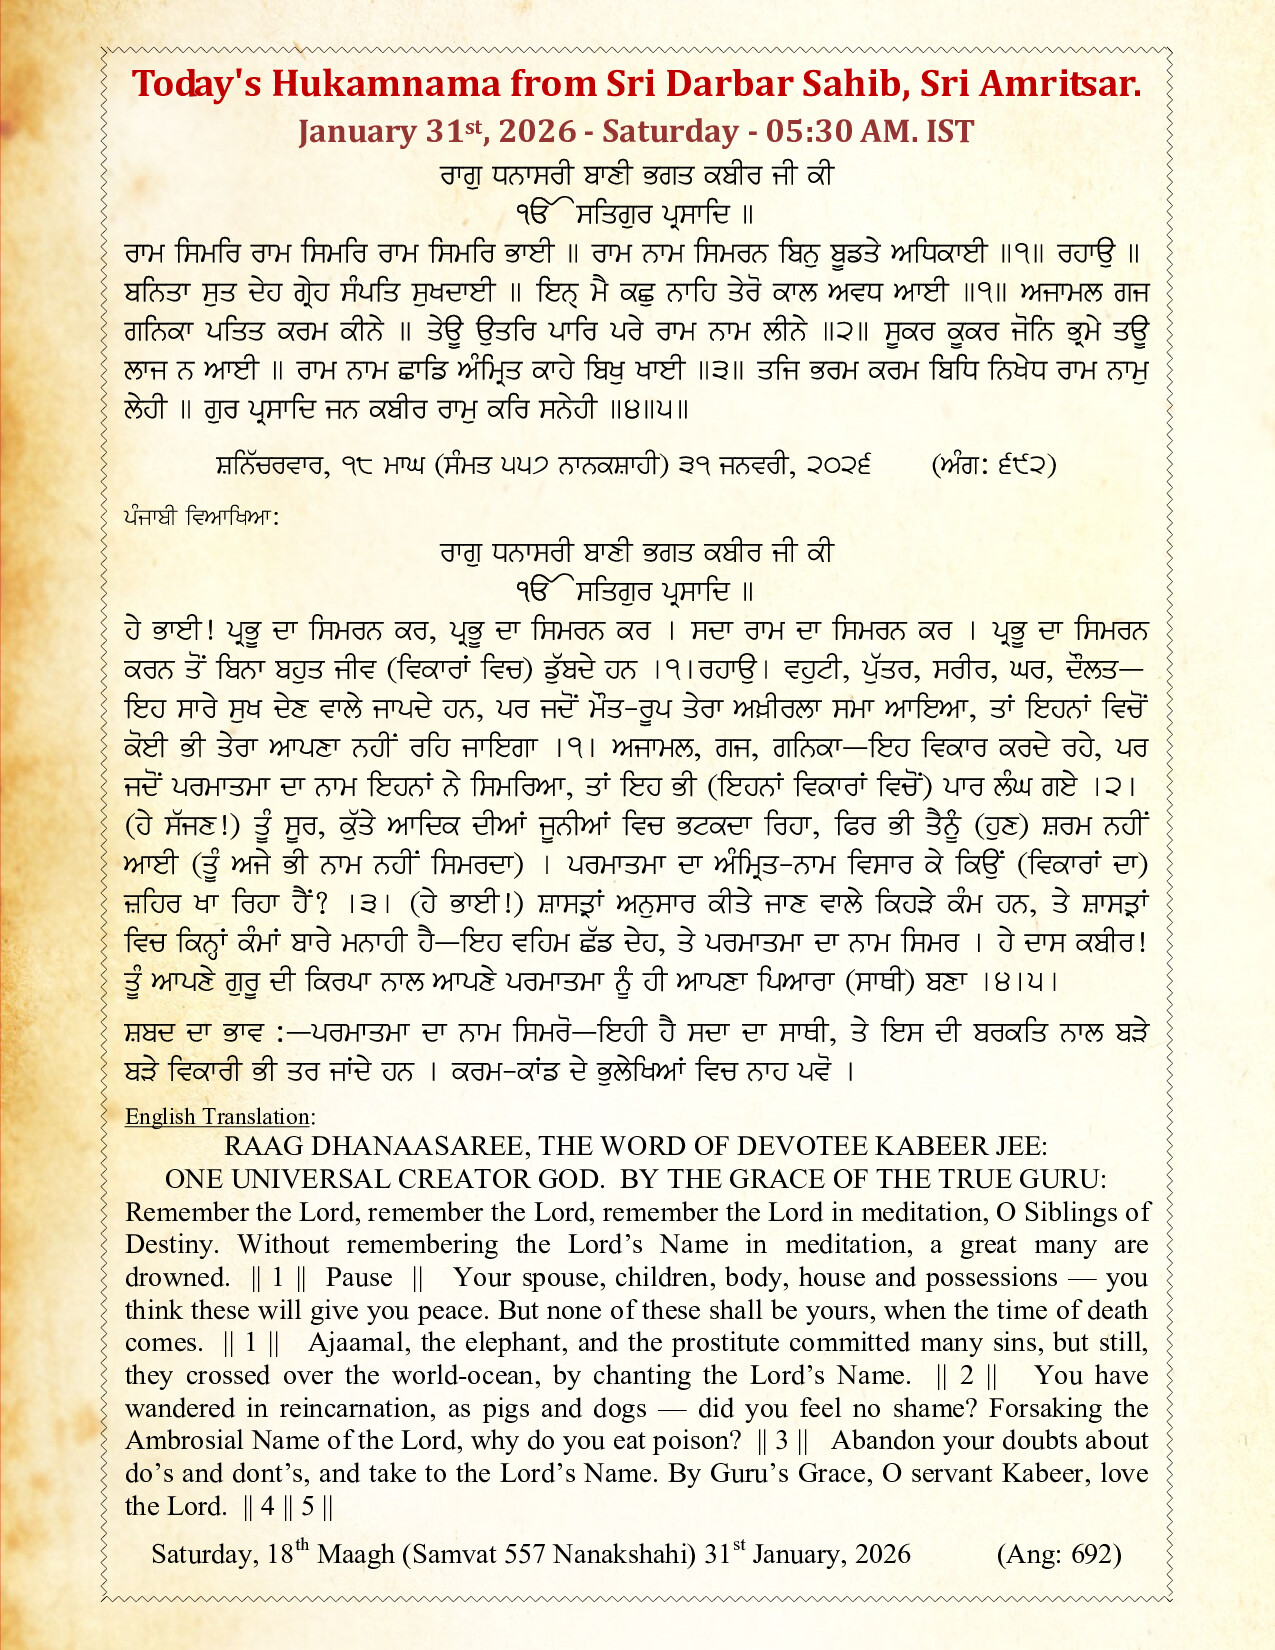 Today's Hukamnama from Sri Darbar Sahib, Sri Amritsar.
January 31st, 2026 - Saturday - 05:30 AM. IST
ਰਾਗੁ ਧਨਾਸਰੀ ਬਾਣੀ ਭਗਤ ਕਬੀਰ ਜੀ ਕੀ
ੴ ਸਤਿਗੁਰ ਪ੍ਰਸਾਦਿ ॥
ਰਾਮ ਸਿਮਰਿ ਰਾਮ ਸਿਮਰਿ ਰਾਮ ਸਿਮਰਿ ਭਾਈ ॥ ਰਾਮ ਨਾਮ ਸਿਮਰਨ ਬਿਨੁ ਬੂਡਤੇ ਅਧਿਕਾਈ ॥੧॥ ਰਹਾਉ ॥
ਬਨਿਤਾ ਸੁਤ ਦੇਹ ਗ੍ਰੇਹ ਸੰਪਤਿ ਸੁਖਦਾਈ ॥ ਇਨ੍ ਮੈ ਕਛੁ ਨਾਹਿ ਤੇਰੋ ਕਾਲ ਅਵਧ ਆਈ ॥੧॥ ਅਜਾਮਲ ਗਜ
ਗਨਿਕਾ ਪਤਿਤ ਕਰਮ ਕੀਨੇ ॥ ਤੇਊ ਉਤਰਿ ਪਾਰਿ ਪਰੇ ਰਾਮ ਨਾਮ ਲੀਨੇ ॥੨॥ ਸੂਕਰ ਕੂਕਰ ਜੋਨਿ ਭ੍ਰਮੇ ਤਊ
ਲਾਜ ਨ ਆਈ ॥ ਰਾਮ ਨਾਮ ਛਾਡਿ ਅੰਮ੍ਰਿਤ ਕਾਹੇ ਬਿਖੁ ਖਾਈ ॥੩॥ ਤਜਿ ਭਰਮ ਕਰਮ ਬਿਧਿ ਨਿਖੇਧ ਰਾਮ ਨਾਮੁ
ਲੇਹੀ ॥ ਗੁਰ ਪ੍ਰਸਾਦਿ ਜਨ ਕਬੀਰ ਰਾਮੁ ਕਰਿ ਸਨੇਹੀ ॥੪॥੫॥
ਸ਼ਨਿੱਚਰਵਾਰ, ੧੮ ਮਾਘ (ਸੰਮਤ ੫੫੭ ਨਾਨਕਸ਼ਾਹੀ) ੩੧ ਜਨਵਰੀ, ੨੦੨੬ (ਅੰਗ: ੬੯੨)
ਪੰਜਾਬੀ ਵਿਆਖਿਆ:
ਰਾਗੁ ਧਨਾਸਰੀ ਬਾਣੀ ਭਗਤ ਕਬੀਰ ਜੀ ਕੀ
ੴ ਸਤਿਗੁਰ ਪ੍ਰਸਾਦਿ ॥
ਹੇ ਭਾਈ! ਪ੍ਰਭੂ ਦਾ ਸਿਮਰਨ ਕਰ, ਪ੍ਰਭੂ ਦਾ ਸਿਮਰਨ ਕਰ । ਸਦਾ ਰਾਮ ਦਾ ਸਿਮਰਨ ਕਰ । ਪ੍ਰਭੂ ਦਾ ਸਿਮਰਨ
ਕਰਨ ਤੋਂ ਬਿਨਾ ਬਹੁਤ ਜੀਵ (ਵਿਕਾਰਾਂ ਵਿਚ) ਡੁੱਬਦੇ ਹਨ ।੧।ਰਹਾਉ। ਵਹੁਟੀ, ਪੁੱਤਰ, ਸਰੀਰ, ਘਰ, ਦੌਲਤ—
ਇਹ ਸਾਰੇ ਸੁਖ ਦੇਣ ਵਾਲੇ ਜਾਪਦੇ ਹਨ, ਪਰ ਜਦੋਂ ਮੌਤ-ਰੂਪ ਤੇਰਾ ਅਖ਼ੀਰਲਾ ਸਮਾ ਆਇਆ, ਤਾਂ ਇਹਨਾਂ ਵਿਚੋਂ
ਕੋਈ ਭੀ ਤੇਰਾ ਆਪਣਾ ਨਹੀਂ ਰਹਿ ਜਾਇਗਾ ।੧। ਅਜਾਮਲ, ਗਜ, ਗਨਿਕਾ—ਇਹ ਵਿਕਾਰ ਕਰਦੇ ਰਹੇ, ਪਰ
ਜਦੋਂ ਪਰਮਾਤਮਾ ਦਾ ਨਾਮ ਇਹਨਾਂ ਨੇ ਸਿਮਰਿਆ, ਤਾਂ ਇਹ ਭੀ (ਇਹਨਾਂ ਵਿਕਾਰਾਂ ਵਿਚੋਂ) ਪਾਰ ਲੰਘ ਗਏ ।੨।
(ਹੇ ਸੱਜਣ!) ਤੂੰ ਸੂਰ, ਕੁੱਤੇ ਆਦਿਕ ਦੀਆਂ ਜੂਨੀਆਂ ਵਿਚ ਭਟਕਦਾ ਰਿਹਾ, ਫਿਰ ਭੀ ਤੈਨੂੰ (ਹੁਣ) ਸ਼ਰਮ ਨਹੀਂ
ਆਈ (ਤੂੰ ਅਜੇ ਭੀ ਨਾਮ ਨਹੀਂ ਸਿਮਰਦਾ) । ਪਰਮਾਤਮਾ ਦਾ ਅੰਮ੍ਰਿਤ-ਨਾਮ ਵਿਸਾਰ ਕੇ ਕਿਉਂ (ਵਿਕਾਰਾਂ ਦਾ)
ਜ਼ਹਿਰ ਖਾ ਰਿਹਾ ਹੈਂ? ।੩। (ਹੇ ਭਾਈ!) ਸ਼ਾਸਤ੍ਰਾਂ ਅਨੁਸਾਰ ਕੀਤੇ ਜਾਣ ਵਾਲੇ ਕਿਹੜੇ ਕੰਮ ਹਨ, ਤੇ ਸ਼ਾਸਤ੍ਰਾਂ
ਵਿਚ ਕਿਨ੍ਹਾਂ ਕੰਮਾਂ ਬਾਰੇ ਮਨਾਹੀ ਹੈ—ਇਹ ਵਹਿਮ ਛੱਡ ਦੇਹ, ਤੇ ਪਰਮਾਤਮਾ ਦਾ ਨਾਮ ਸਿਮਰ । ਹੇ ਦਾਸ ਕਬੀਰ!
ਤੂੰ ਆਪਣੇ ਗੁਰੂ ਦੀ ਕਿਰਪਾ ਨਾਲ ਆਪਣੇ ਪਰਮਾਤਮਾ ਨੂੰ ਹੀ ਆਪਣਾ ਪਿਆਰਾ (ਸਾਥੀ) ਬਣਾ ।੪।੫।
ਸ਼ਬਦ ਦਾ ਭਾਵ :—ਪਰਮਾਤਮਾ ਦਾ ਨਾਮ ਸਿਮਰੋ—ਇਹੀ ਹੈ ਸਦਾ ਦਾ ਸਾਥੀ, ਤੇ ਇਸ ਦੀ ਬਰਕਤਿ ਨਾਲ ਬੜੇ
ਬੜੇ ਵਿਕਾਰੀ ਭੀ ਤਰ ਜਾਂਦੇ ਹਨ । ਕਰਮ-ਕਾਂਡ ਦੇ ਭੁਲੇਖਿਆਂ ਵਿਚ ਨਾਹ ਪਵੋ ।
English Translation:
RAAG DHANAASAREE, THE WORD OF DEVOTEE KABEER JEE:
ONE UNIVERSAL CREATOR GOD. BY THE GRACE OF THE TRUE GURU:
Remember the Lord, remember the Lord, remember the Lord in meditation, O Siblings of
Destiny. Without remembering the Lord’s Name in meditation, a great many are
drowned. || 1 || Pause || Your spouse, children, body, house and possessions — you
think these will give you peace. But none of these shall be yours, when the time of death
comes. || 1 || Ajaamal, the elephant, and the prostitute committed many sins, but still,
they crossed over the world-ocean, by chanting the Lord’s Name. || 2 || You have
wandered in reincarnation, as pigs and dogs — did you feel no shame? Forsaking the
Ambrosial Name of the Lord, why do you eat poison? || 3 || Abandon your doubts about
do’s and dont’s, and take to the Lord’s Name. By Guru’s Grace, O servant Kabeer, love
the Lord. || 4 || 5 ||
Saturday, 18th Maagh (Samvat 557 Nanakshahi) 31st January, 2026 (Ang: 692)